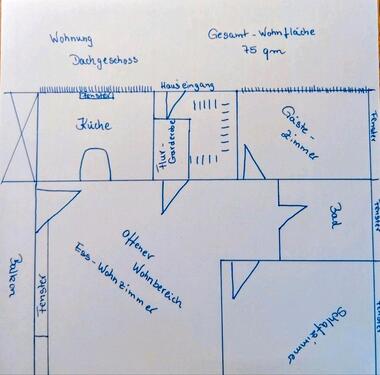 Wohnung
Dachgeschoss
Gesamt-Wohnfläche
75 qm
Hauseingang
Fenster
Küche
Flur-
Garderobe
Gäste-
zimmer
Fenster
Fenster
Bad
Offener
Wohnbereich
Ess-Wohnzimmer
Balkon
Fenster
Fenster
Schlafzimmer